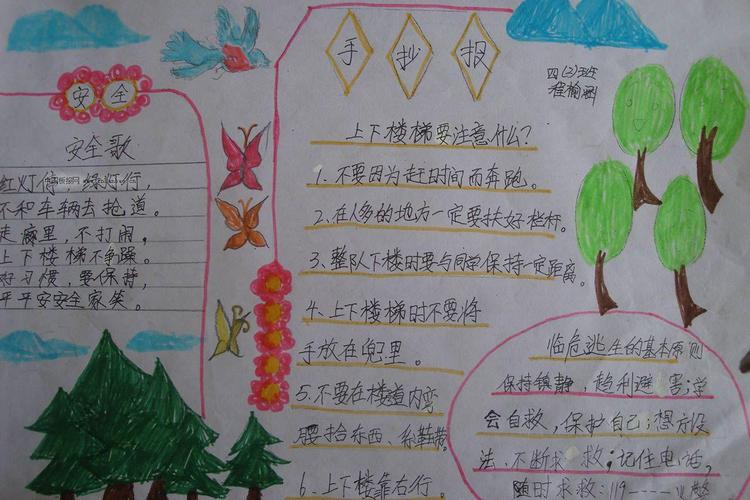 手抄报
四(2)班
安全
安全歌
红灯停,绿灯行,
不和车辆去抢道。
走廊里,不打闹,
上下楼梯不争躁。
好习惯,要保持,
平平安安全家笑。
上下楼梯要注意什么?
1、不要因为赶时间而奔跑。
2、在人多的地方一定要扶好栏杆。
3、整队下楼时要与同学保持一定距离。
4、上下楼梯时不要将
手放在兜里。
5、不要在楼道内弯
腰拾东西、系鞋带。
6、上下楼靠右行。
临危逃生的基本原则
保持镇静,趋利避害;学
会自救,保护自己;想方设
法、不断求救;记住电话,
随时求救:119